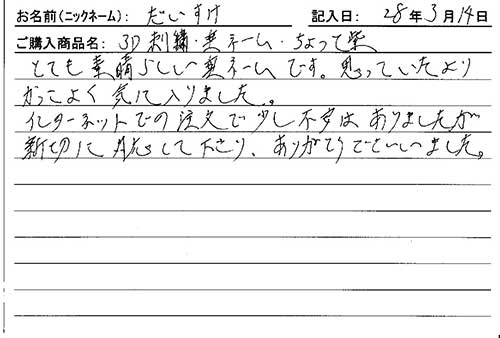 お名前(ニックネーム): だいすけ 記入日: 28年3月14日
ご購入商品名: 3D刺繍・裏ネーム・ちょっと紫
とても素晴らしい裏ネームです。思っていたより
かっこよく気に入りました。
インターネットでの注文で少し不安はありましたが
親切に対応して下さり、ありがとうございました。